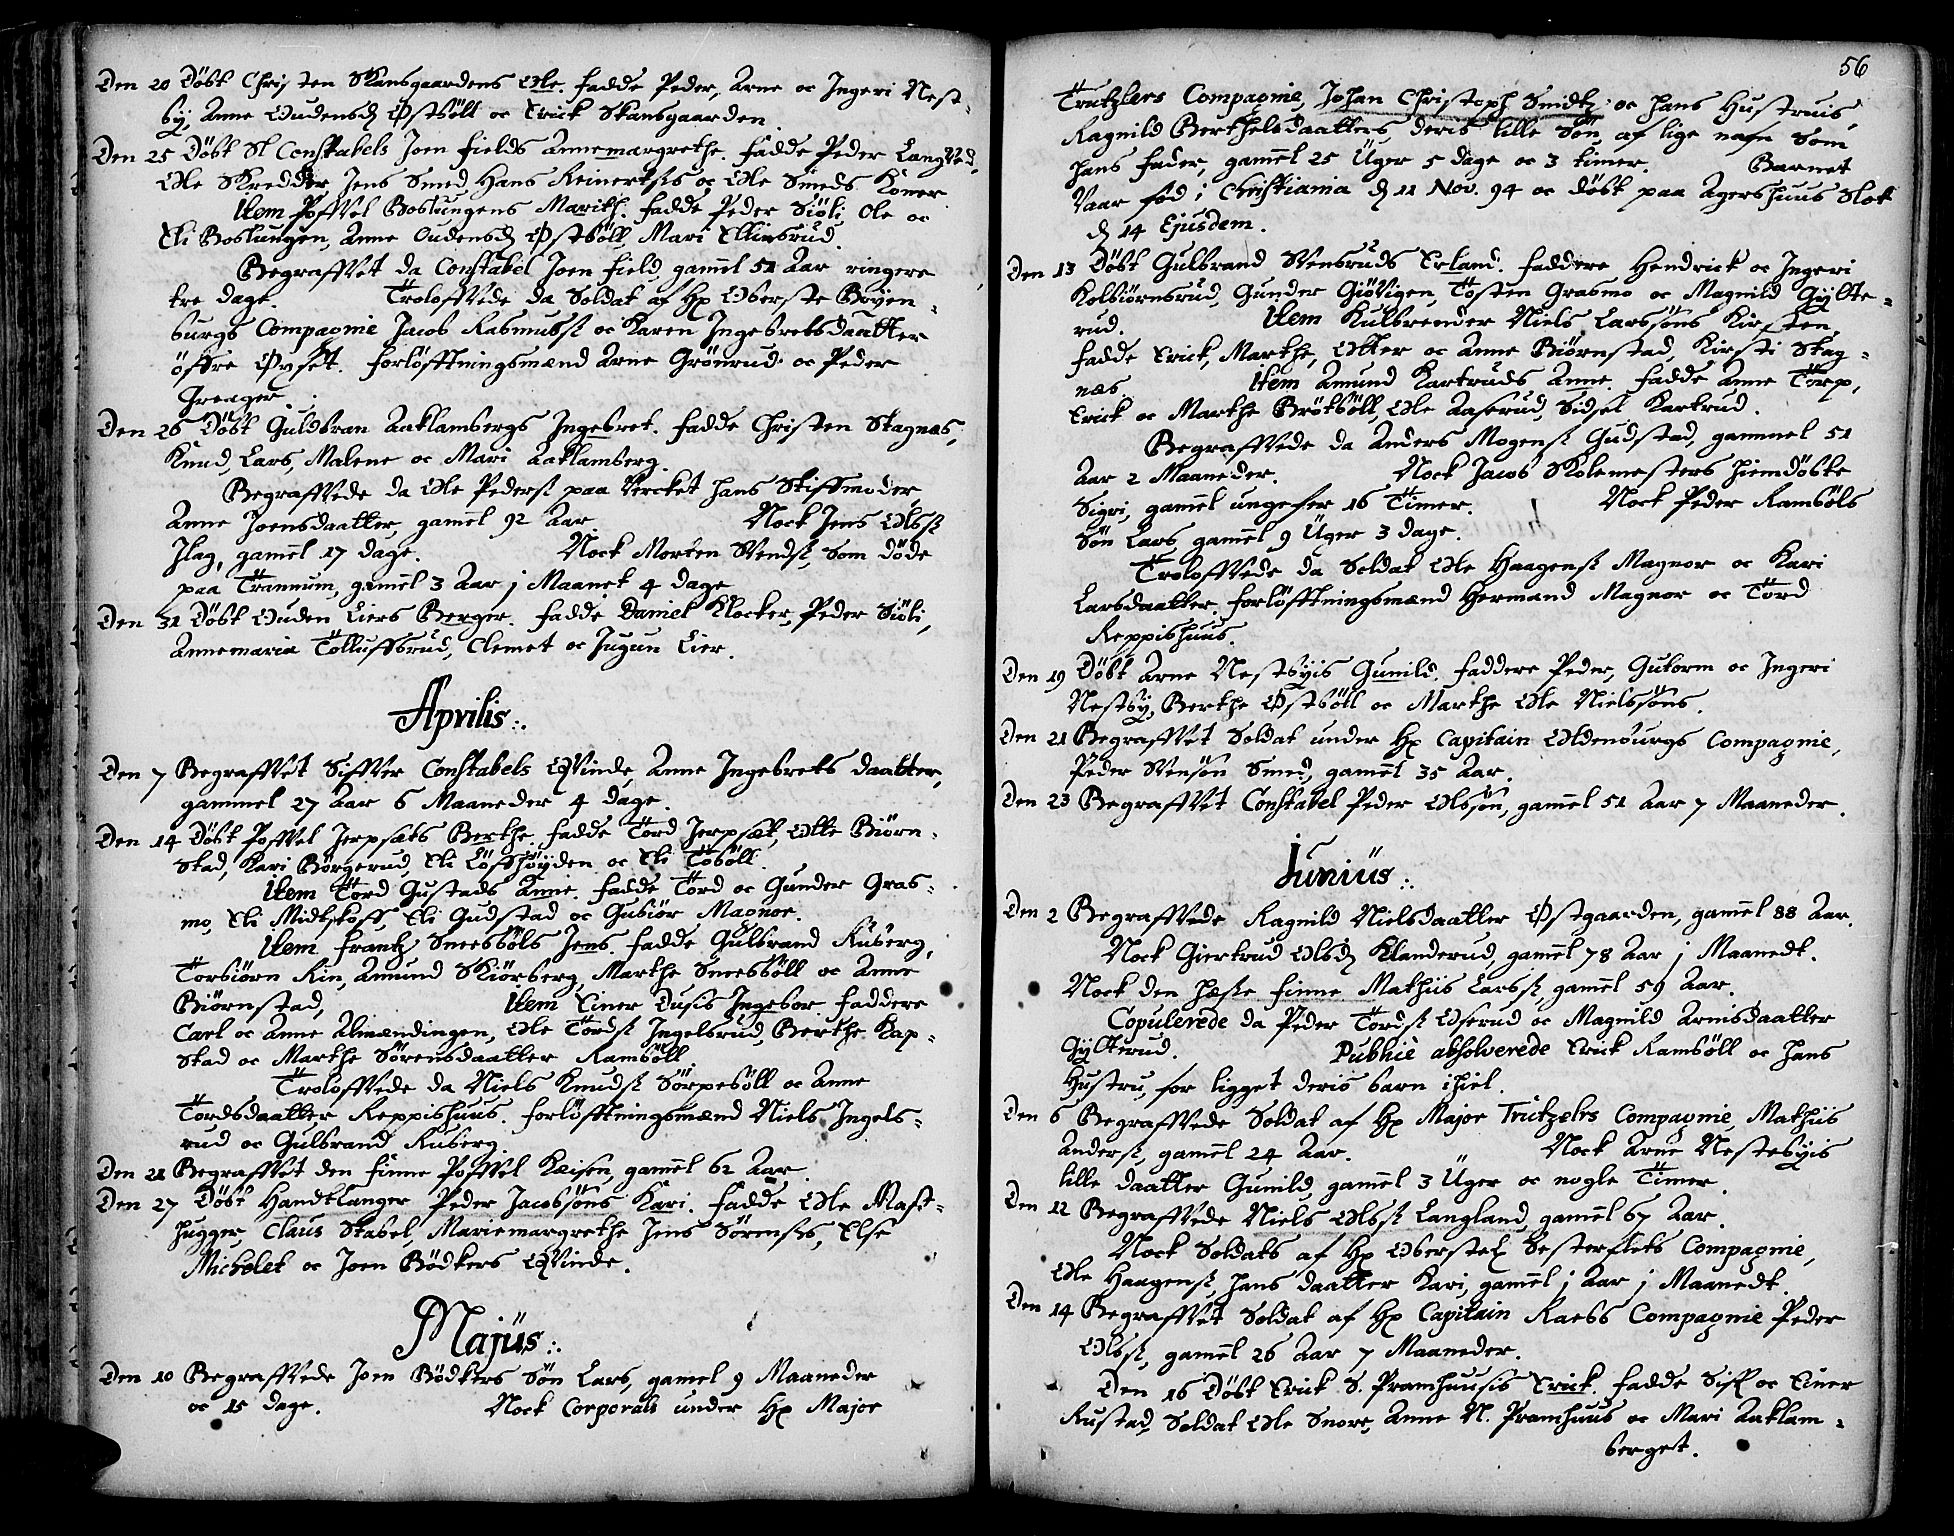 Den 20 Döbt Christen Skansgaardens Ole. fadde Peder, Arne oc Ingeri Nest-
by, Anne Oudensd Østböll oc Erick Skansgaarden
Den 25 Döbt Sl Constabels Joen Fields Annemargrethe. fadde Peder Langved,
Ole Skredder, Jens Smed, Hans Reinertss oc Ole Smeds Koner.
Item Poffvel Boslungens Marith. fadde Peder Siöli, Ole oc
Eli Boslungen, Anne Oudensd Østböll, Mari Ellinsrud.
Begraffvet da Constabel Joen Field, gamel 51 Aar ringere
tre dage. Troloffvede da Soldat af Hr Oberste Boyen-
burgs Compagnie Jacob Rasmuss oc Karen Ingebretsdaatter
öffre Øvset. forlöfftningsmænd Arne Grönrud oc Peder
Den 26 Döbt Guldbran Aaklambergs Ingebret. fadde Christen Stagnæs,
Knud, Lars, Malene oc Mari Aaklamberg.
Begraffvede da Ole Peders paa Vercket hans Stiffmoder
Anne Joensdaatter, gamel 92 Aar. Nock Jens Ols
Ilag, gamel 17 dage. Nock Morten Svends, som döde
paa Trannum, gamel 3 Aar j Maanet 4 dage
Den 31 Döbt Ouden Liers Berger. fadde Daniel Klocker, Peder Siöli,
Annemaria Tolluffsrud, Clemet oc Jugun Lier.
Aprilis:.
Den 7 Begraffvet Siffver Constabels Qvinde, Anne Ingebrets daatter,
gammel 27 Aar 6 Maaneder 4 dage.
Den 14 Döbt Poffvel Jerpsæts Berthe. fadde Tord Jerpsæt, Otte Biörn-
stad, Kari Börgerud, Eli Löfshöyden oc Eli Toböll.
Item Tord Gustads Anne. fadde Tord oc Gunder Gras-
mo, Eli Midtskoff, Eli Gudstad oc Gubiör Magnor.
Item Frantz Sneesböls Jens. fadde Gulbrand Ruberg,
Torbiörn Rin, Amund Skiörberg, Marthe Sneesböll oc Anne
Biörnstad, Item Einer Dusis Ingebor. faddere
Carl oc Anne Almændingen, Ole Tords Ingelsrud, Berthe Kap-
stad oc Marthe Sörensdaatter Ramsöll
Troloffvede da Niels Knuds Sörpeböll oc Anne
Tordsdaatter Reppishuus. forlöfftningsmænd Niels Ingels-
rud oc Gulbrand Ruberg
Den 21 Begraffvet den Finne Poffvel Keisen, gamel 62 Aar
Den 27 Döbt Handtlanger Peder Jacobsöns Kari. fadde Ole Mast-
hugger, Claus Stabel, Mariemargrethe Jens Sörenss, Else
Michelet oc Joen Bödkers Qvinde.
Majus:.
Den 10 Begraffvede Joen Bödkers Sön Lars, gamel 9 Maaneder
oc 15 dage. Nock Corporals under Hr Major
56
Trutzlers Compagnie, Johan Christoph Smidtz oc hans Hustruis
Ragnild Berthelsdaatters deris lille Sön af lige nafn Som
hans fader, gamel 25 Uger 5 dage oc 3 timer. Barnet
Vaar fød i Christiania d 11 Nov. 94 oc döbt paa Agershuus Slot
d 14 Ejusdem.
Den 13 Döbt Gulbrand Svensruds Erland. faddere Hendrick oc Ingeri
Kolbiörnsrud, Gunder Giövigen, Tosten Grasmo oc Magnild Gylte-
rud. Item Kulbrender Niels Larssöns Kirsten,
fadde Erick, Marthe, Otter oc Anne Biörnstad, Kirsti Stag-
næs Item Amund Kartruds Anne. fadde Anne Torp,
Erick oc Marthe Brötböll, Ole Aaserud, Sidsel Kartrud.
Begraffvede da Anders Mogens Gudstad, gammel 51
Aar 2 Maaneder. Nock Jacob Skolemesters hiemdöbte
Sigri, gamel ungefer 16 Timer. Nock Peder Ramsöls
Sön Lars gamel 9 Uger 3 dage.
Troloffvede da Soldat Ole Haagens Magnor oc Kari
Larsdaatter. forlöfftningsmænd Hermand Magnor oc Tord
Reppishuus.
Den 19 Döbt Arne Nestbyis Gunild. faddere Peder, Gutorm oc Ingeri
Nestby, Berthe Østböll oc Marthe Ole Nielssöns.
Den 21 Begraffvet Soldat under Hr Capitain Oldenburgs Compagnie,
Peder Svensön Smed, gamel 35 Aar.
Den 23 Begraffvet Constabel Peder Olssön, gamel 51 Aar 7 Maaneder.
Junius:.
Den 2 Begraffvede Ragnild Nielsdaatter Østgaarden, gamel 88 Aar.
Nock Giertrud Olsd Klanderud, gamel 78 Aar j Maanedt.
Nock den hæske Finne Mathiis Larss gamel 59 Aar.
Copulerede da Peder Tords Oserud oc Magnild Arnisdaatter
Gylterud. Publicè absolverede Erick Ramböll oc hans
Hustru, for ligget deris barn ihiel.
Den 6 Begraffvede Soldat af Hr Major Trutzelrs Compagnie, Mathiis
Anders, gamel 24 Aar. Nock Arne Nestebyis
lille daatter Gunild gamel 3 Uger oc nogle Timer.
Den 12 Begraffvede Niels Olss Langland, gamel 67 Aar.
Nock Soldats af Hr Oberstel Sesterflets Compagnie,
Ole Haagens, hans daatter Kari, gamel j Aar j Maanedt.
Den 14 Begraffvet Soldat af Hr Capitain Raebs Compagnie Peder
Olss, gamel 26 Aar 7 Maaneder.
Den 16 Döbt Erick S. Pramhuusis Erick. fadde Siff oc Einer
Rustad, Soldat Ole Snore, Anne N. Pramhuus oc Mari Aaklam-
berget.